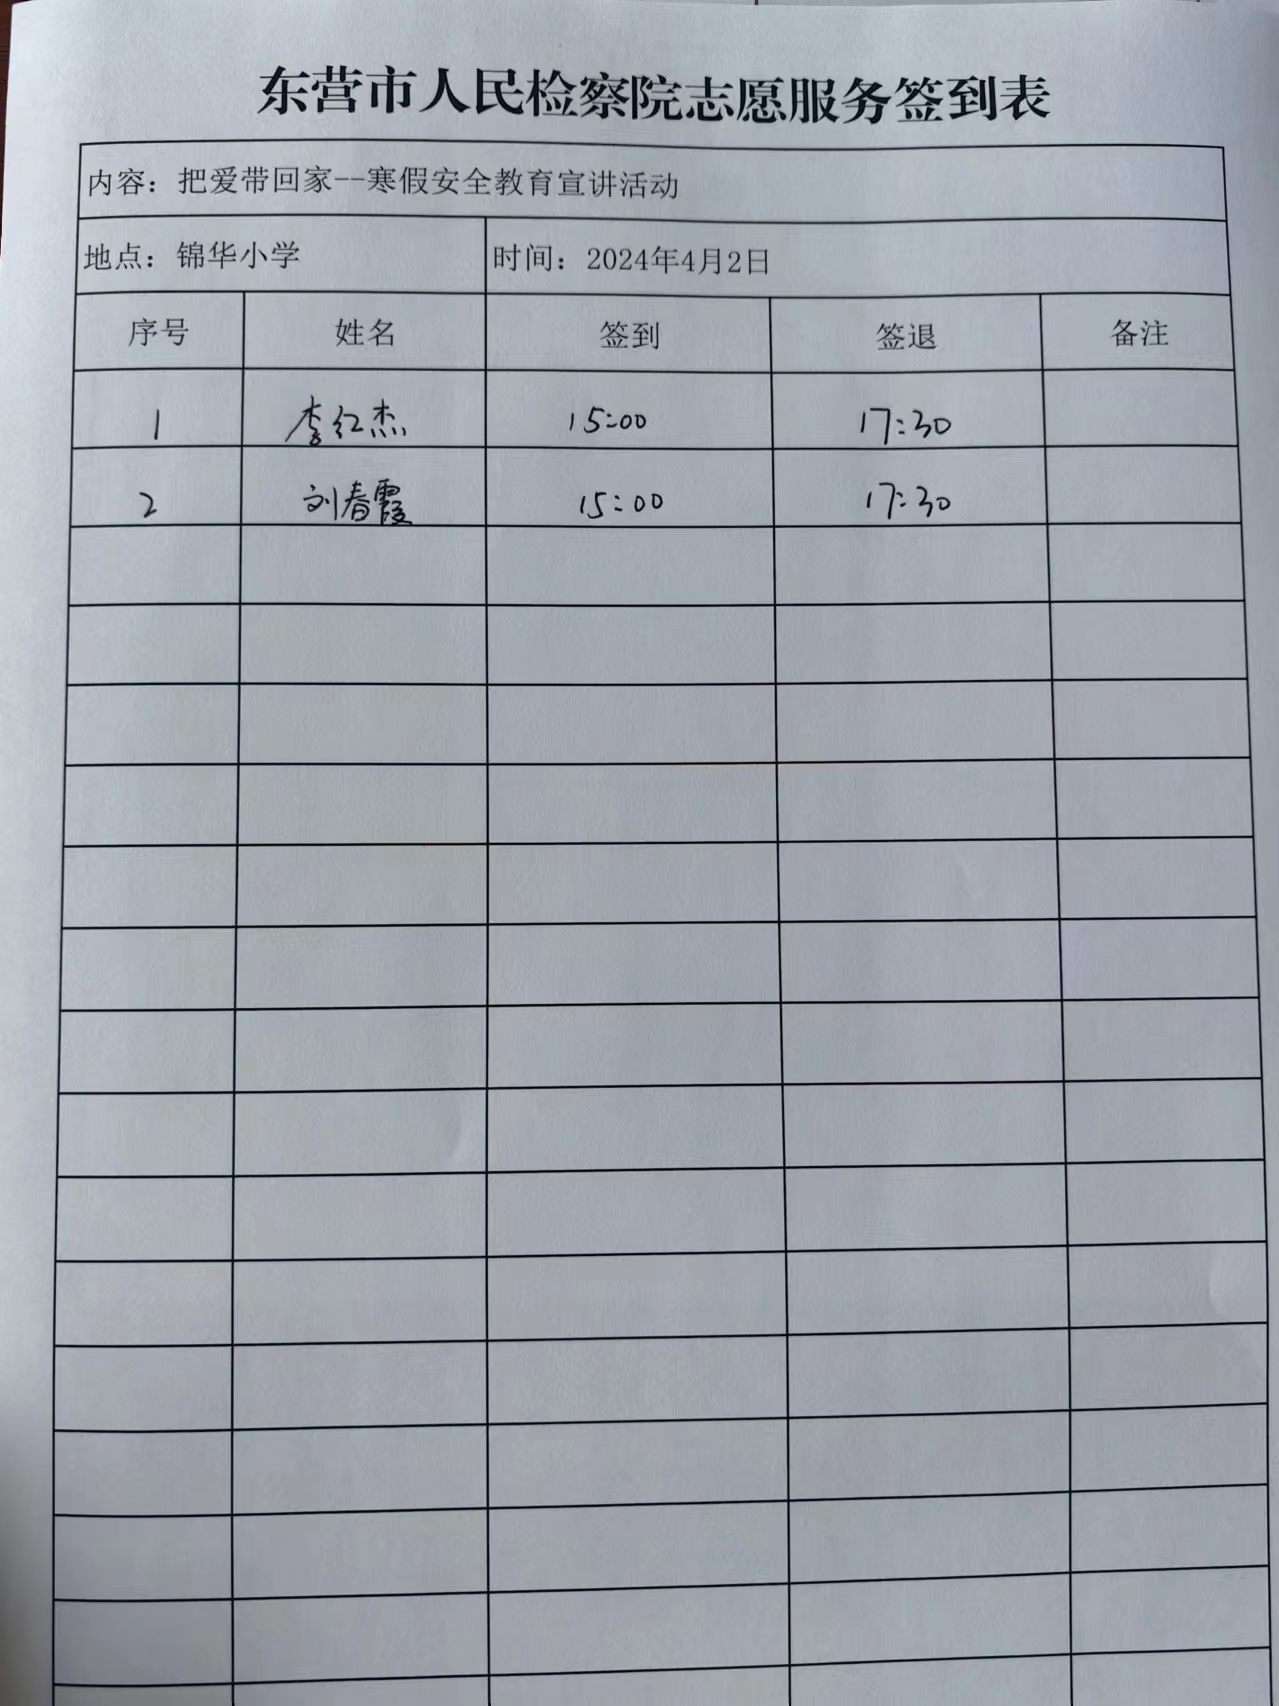 东营市人民检察院志愿服务签到表
内容：把爱带回家--寒假安全教育宣讲活动
地点：锦华小学 时间：2024年4月2日
序号 姓名 签到 签退 备注
1 李红杰 15:00 17:30
2 刘春霞 15:00 17:30